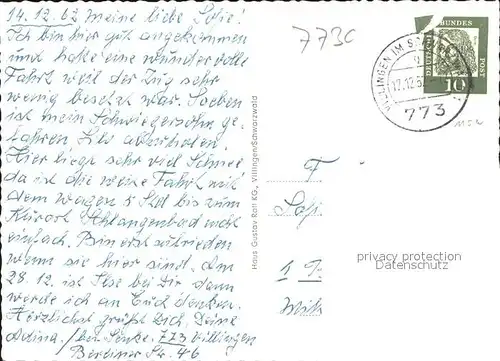 14.12.62 meine liebe Sofie!
Ich bin hier gut angekommen
und hatte eine wundervolle
Fahrt weil der Zug sehr
wenig besetzt war. Soeben
ist mein Schwiegersohn ge-
fahren, Ilse abzuholen.
Hier liegt sehr viel Schnee
da ist die weite Fahrt mit
dem Wagen 5 Std bis zum
Kurort Schlangenbad nicht
einfach. Bin erst zufrieden
wenn sie hier sind. Am
28.12. ist Ilse bei Dir dann
werde ich an Euch denken.
Herzlichst grüßt Dich, Deine
bei 773 Villingen
Berliner Str. 46
7730
VILLINGEN IM
12.62
773
DEUTSCHE BUNDES POST
10
Haus Gustav Rall KG., Villingen/Schwarzwald
F
Sofi
privacy protection
Datenschutz